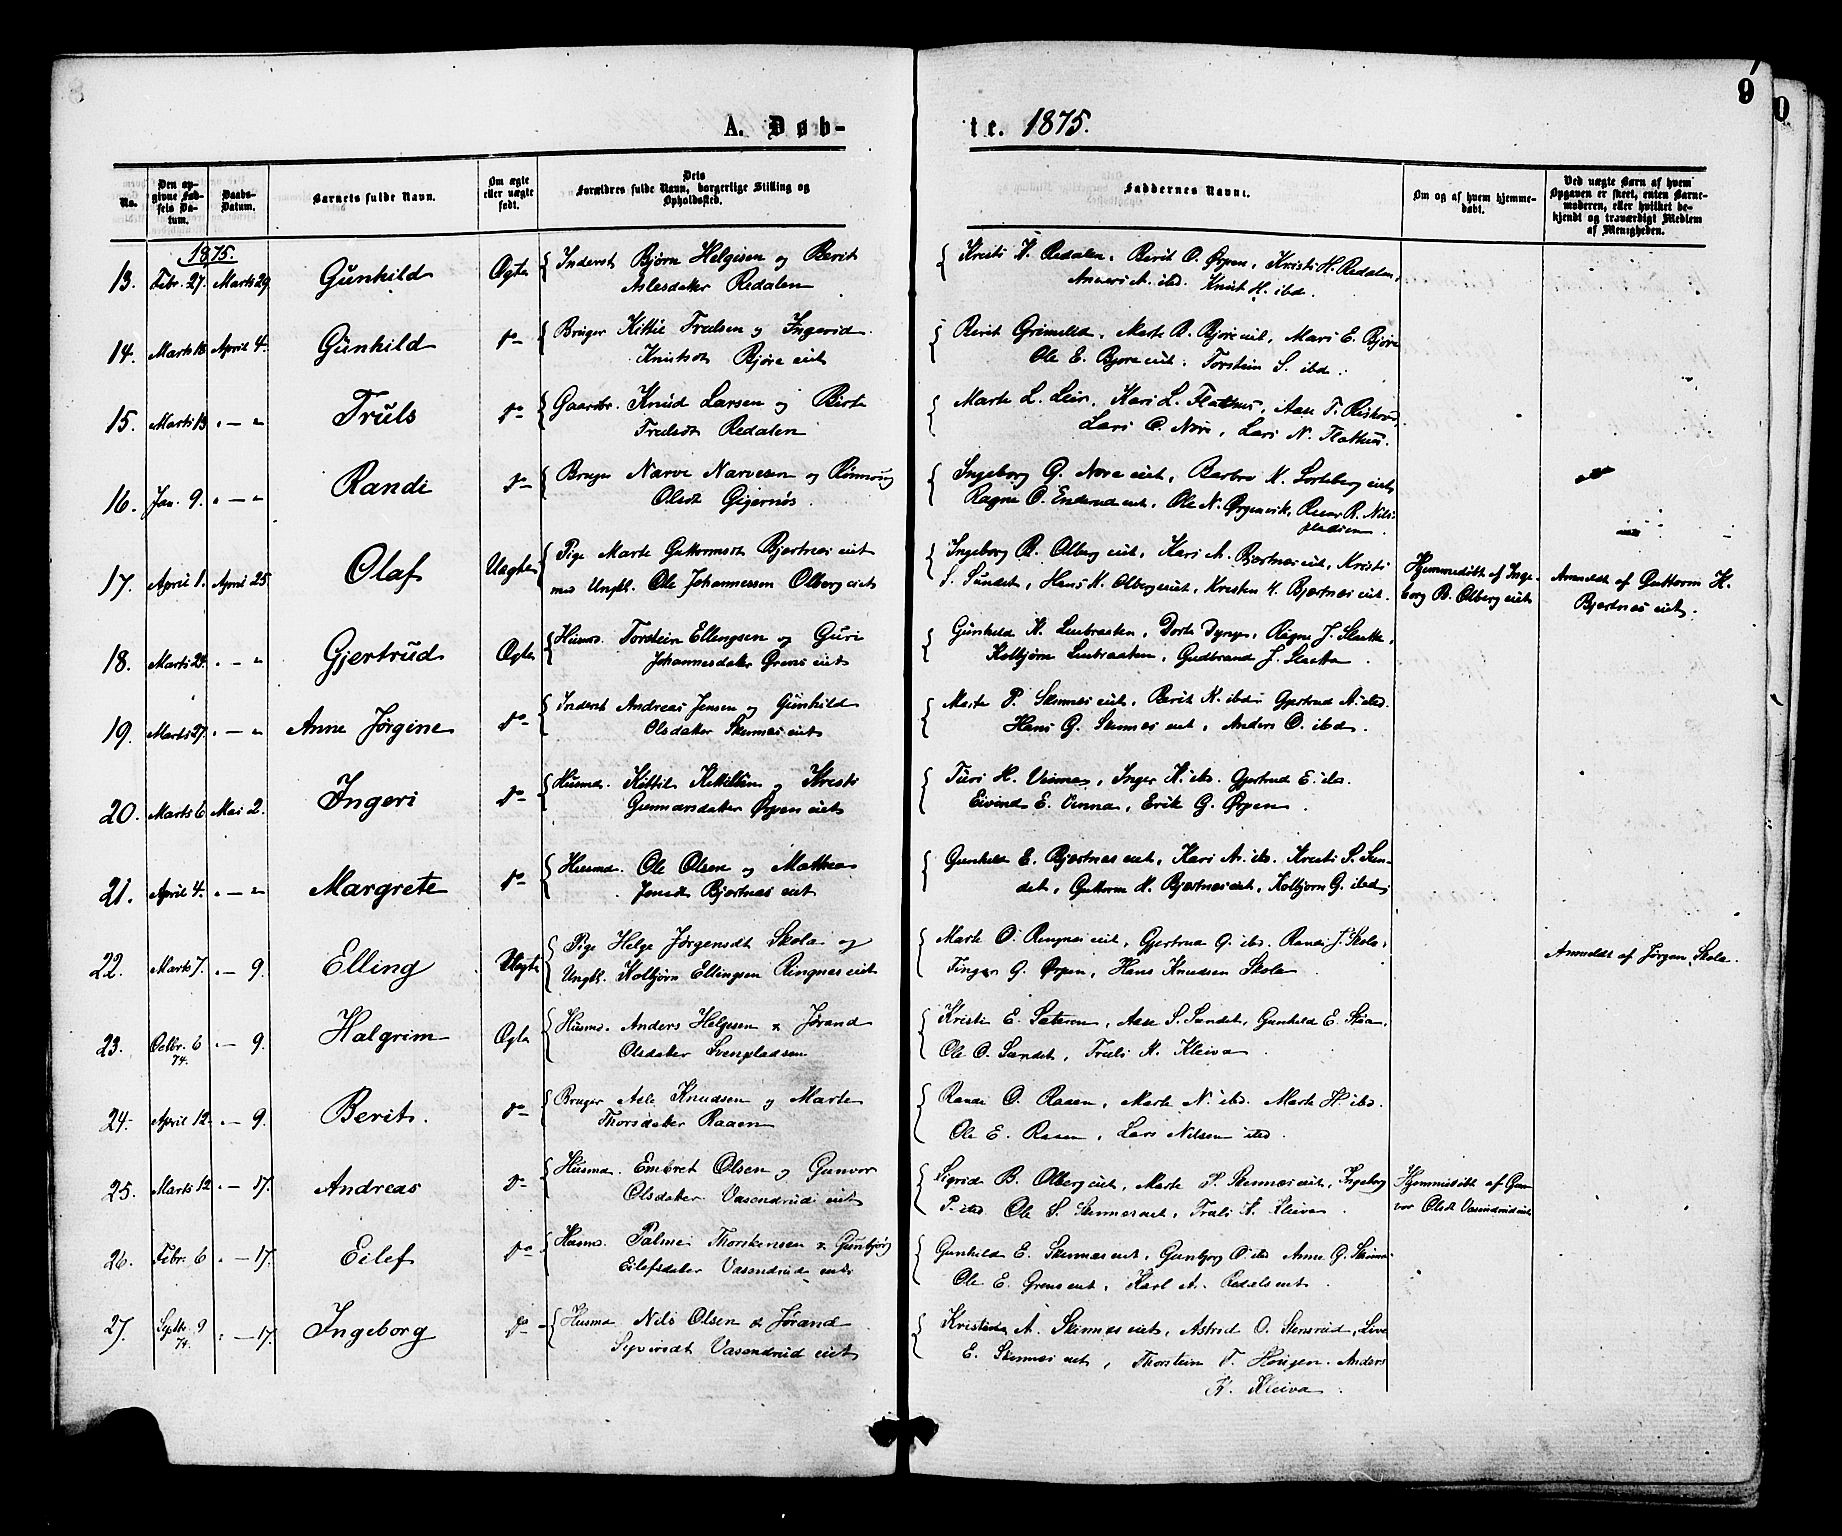 8
9
A. Døb-
te. 1875.
No.
Den opgivne Fødsels Datum.
Daabs-Datum.
Barnets fulde Navn.
Om ægte eller uægte født.
Dets Forældres fulde Navn, borgerlige Stilling og Opholdssted.
Faddernes Navne.
Om og af hvem hjemmedøbt.
Ved uægte Børn af hvem Opgaven er skeet, enten Barnemoderen, eller hvilket bekjendt og troværdigt Medlem af Menigheden.
1875.
13. Febr. 27. Marts 29. Gunhild Ægte Inderst Bjørn Helgesen og Berit
Aslesdater Redalen
Kristi K. Redalen, Berit O. Ørpen, Kristi H. Redalen,
A. ibd. Knut H. ibd.
14. Marts 18 April 4. Gunhild do Bruger Kittil Trulsen og Ingerid
Knutsdt Bjøre eiet
Berit Grimelid, Marte R. Bjøre eiet, Mari E. Bjøre
Ole E. Bjøre eiet. Torstein S. ibd.
15. Marts 13 " — " Truls do Gaardbr. Knud Larsen og Birte
Trulsdt Redalen
Marte L. Leir, Kari L. Flathus, Aase T.
Lars O. Nore, Lars N. Flathus.
16. Jan. 9. " — " Randi do Bruger Narve Narvesen og Rønnoug
Olsdt Gjernøs.
Ingeborg G. Nore eiet, Barbro K. Sorteberg eiet,
Ragne O. Enderud eiet, Ole N. Ørgenvik, R. Nils-
pladsen
17. April 1. April 25. Olaf Uægte Pige Marte Guttormsdt Bjertnæs eiet
med Ungkl. Ole Johannessen Olberg eiet
Ingeborg B. Olberg eiet, Kari A. Bjertnæs eiet, Kristi
S. Sundet, Hans K. Olberg eiet, Kresten H. Bjertnæs eiet.
Hjemmedøbt af Inge-
borg B. Olberg eiet
Anmeldt af Guttorm K.
Bjertnæs eiet.
18. Marts 24. " — " Gjertrud Ægte Husmd. Torstein Ellingsen og Guri
Johannesdater Grens eiet
Gunhild K. Leubraaten, Dorte Dynge, Ragne J. Slaatta,
Kolbjørn Leubraaten, Gudbrand J. Slaatta.
19. Marts 27. " — " Anne Jørgine do Inderst Andreas Jensen og Gunhild
Olsdater Skinnes eiet
Marte P. Skinnes eiet, Berit K. ibd. Gjertrud A. ibd.
Hans G. Skinnes eiet, Anders O. ibd.
20. Marts 6 Mai 2. Ingeri do Husmd. Kittil Kittilsen og Kristi
Gunnarsdater Ørpen eiet
Turi H. Vinna, Inger K. ibd. Gjertrud E. ibd.
Eivind E. Vinna, Erik G. Ørpen.
21. April 4. " — " Margrete do Husmd. Ole Olsen og Mathea
Jensdt Bjertnæs eiet
Gunhild E. Bjertnæs eiet, Kari A. ibd. Kristi S. Sun-
det, Guttorm K. Bjertnæs eiet, Kolbjørn G. ibd.
22. Marts 7. " — 9. Elling Uægte Pige Helge Jørgensdt Skola og
Ungkl. Kolbjørn Ellingsen Ringnæs eiet
Marte O. Ringnæs eiet, Gjertrud G. ibd. Randi J. Skola,
Finger G. Ørpen, Hans Knudsen Skola.
Anmeldt af Jørgen Skola.
23. Octbr. 6 74. " — 9. Halgrim Ægte Husmd. Anders Helgesen & Jørand
Olsdater Svenpladsen
Kristi E. Sæteren, Aase S. Sundet, Gunhild E. Støa,
Ole O. Sundet, Truls K. Kleiva.
24. April 12. " — 9. Berit. do Bruger Asle Knudsen og Marte
Thorsdater Raaen
Randi O. Raaen, Marte N. ibd. Marte H. ibd.
Ole E. Raaen, Lars Nilsen ibd.
25. Marts 12 " — 17. Andreas do Husmd. Embret Olsen og Gunvor
Olsdater Vasendrud eiet
Sigrid B. Olberg eiet, Marte P. Skinnes eiet, Ingeborg
P. ibd. Ole S. Skinnes eiet, Truls K. Kleiva.
Hjemmedøbt af Gun-
vor Olsdt Vasendrud eiet
26. Febr. 6 " — 17. Eilef do Husmd. Palme Thorstensen & Gunbjørg
Eilefsdater Vasendrud eiet
Gunhild E. Skinnes eiet, Gunbjørg O. ibd. Anne G. Skinnes
Ole E. Grens eiet, Karl A. Redals eiet.
27. Septbr. 9 74. " — 17. Ingeborg do Husmd Nils Olsen & Jørand
Syversdt Vasendrud eiet
A. Skinnes eiet, Astrid O. Stensrud, Live
E. Skinnes eiet, Thorstein T. Haugen. Anders
K. Kleiva.